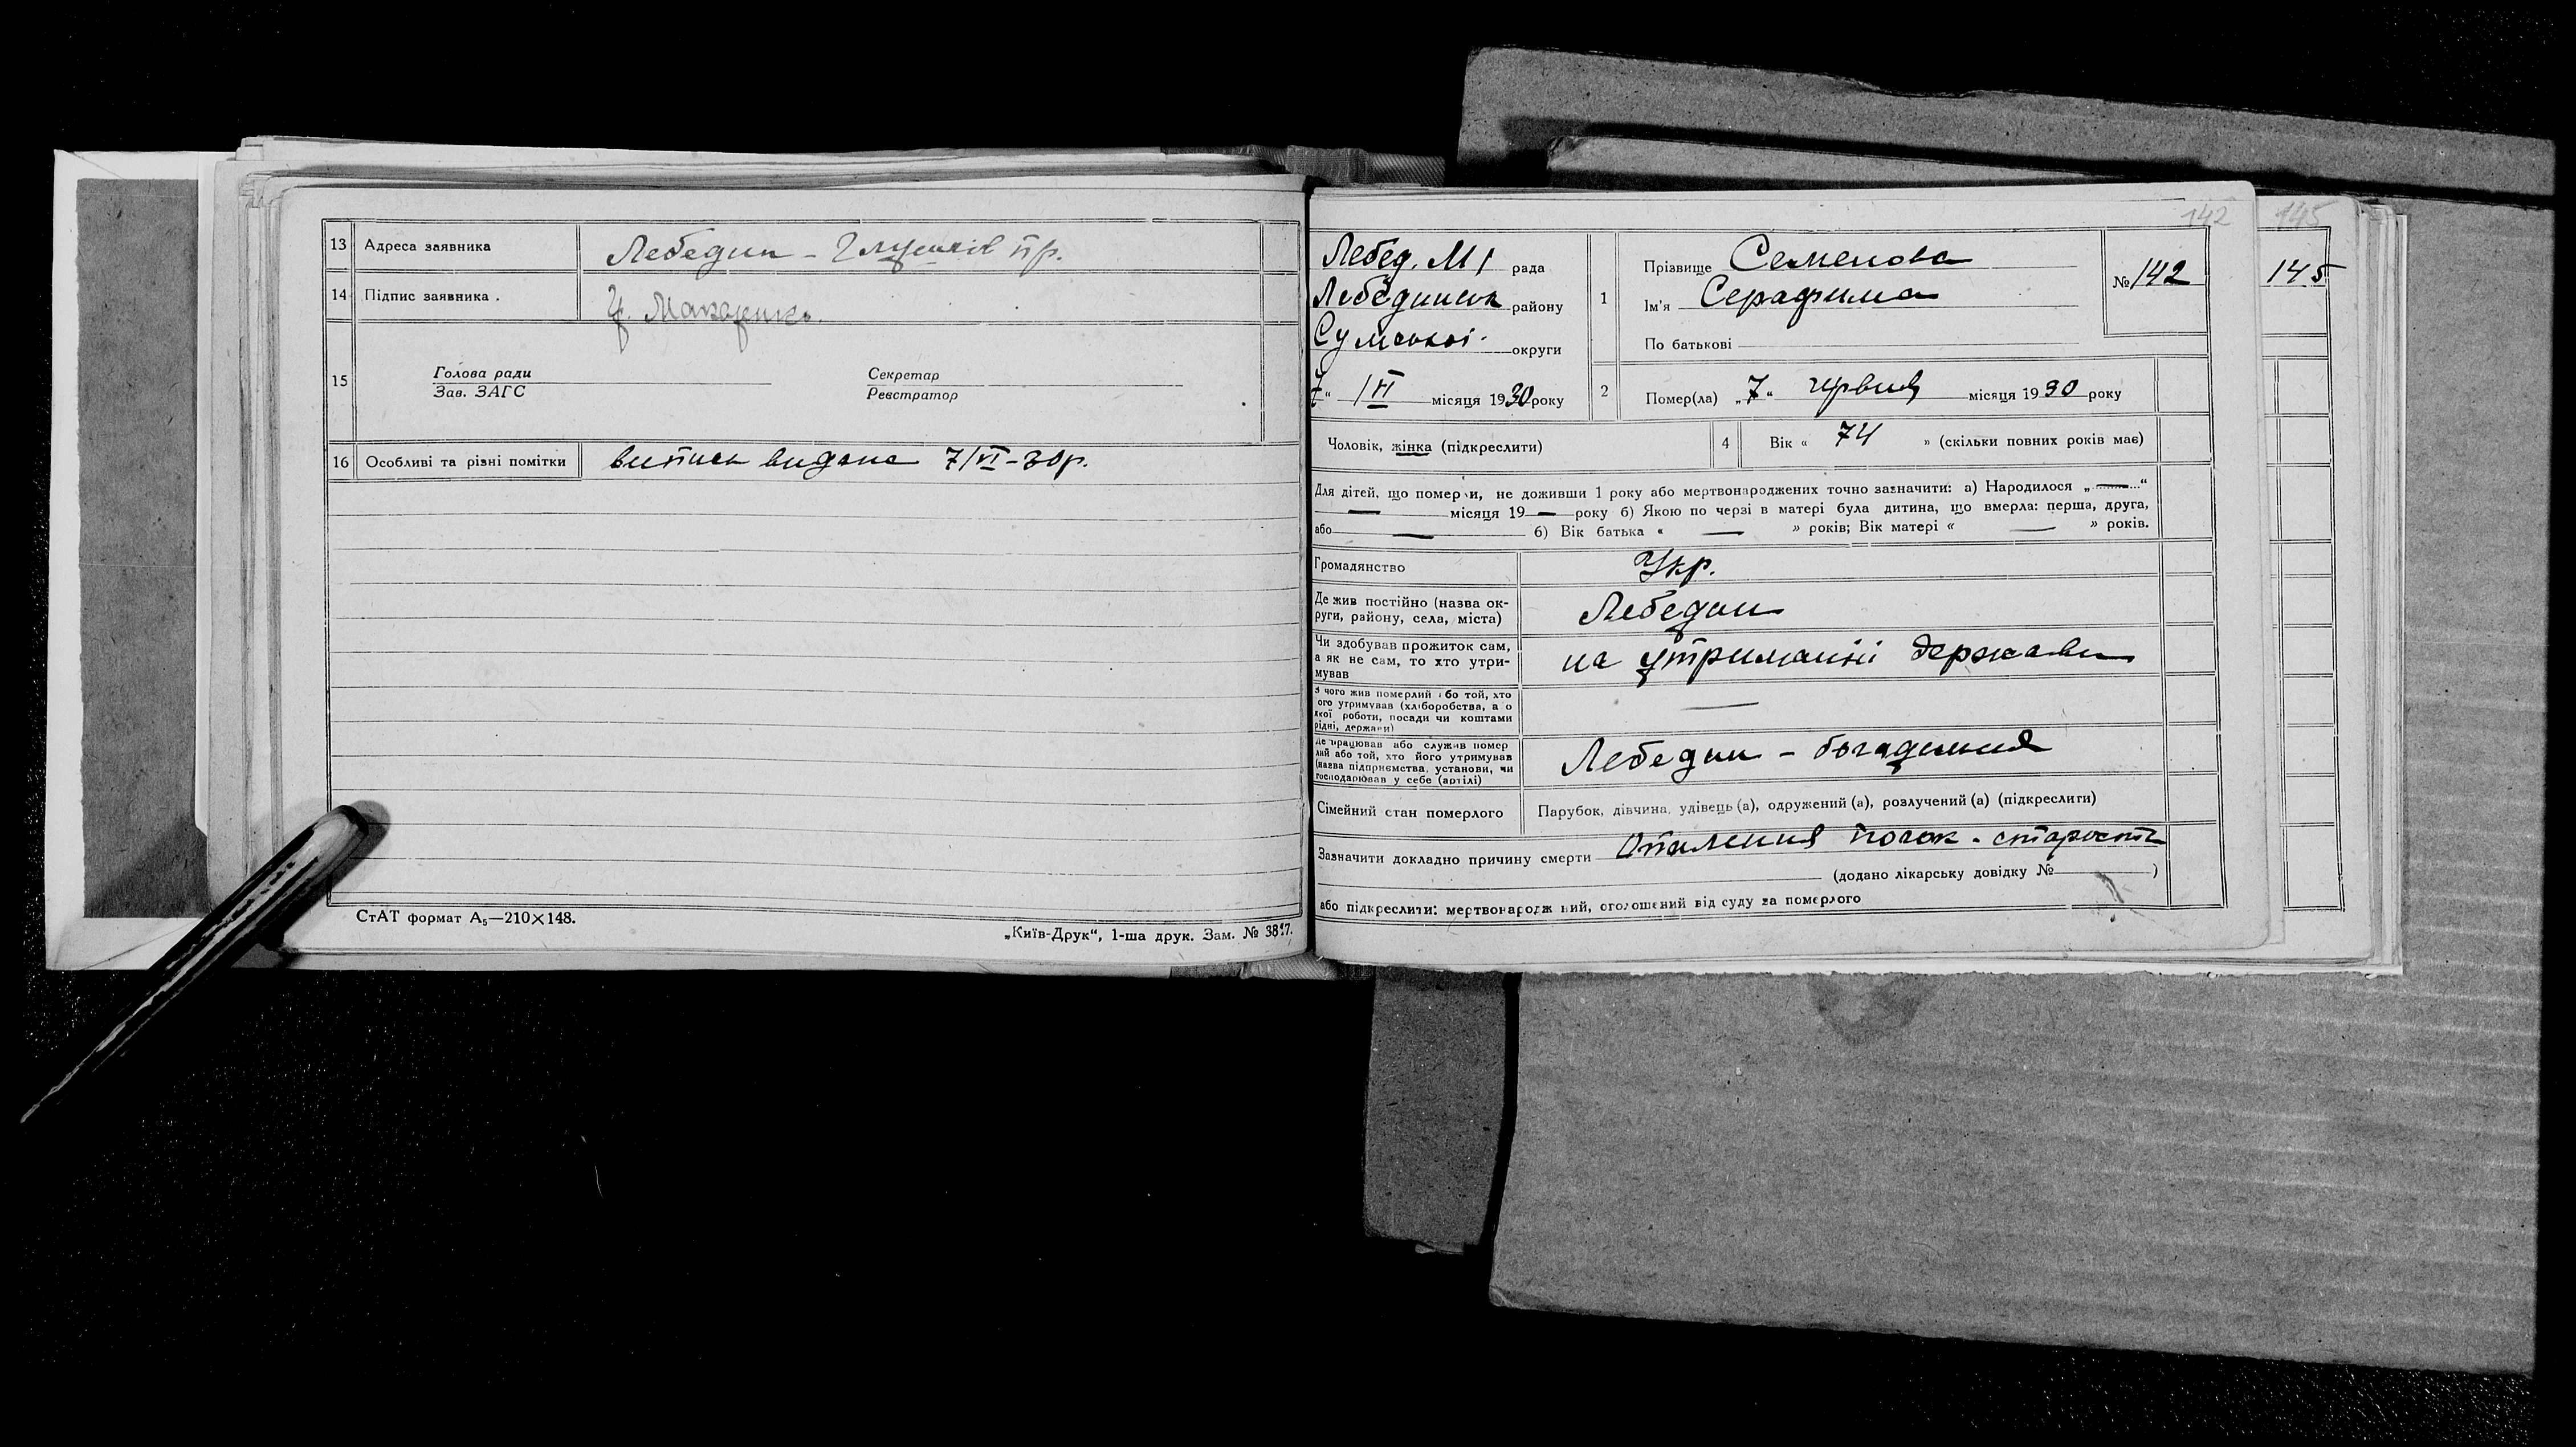 13 Адреса заявника Лебедин - Глущенків пр.
14 Підпис заявника . Макаренко.
15 Голова ради Секретар
Зав. ЗАГС Реєстратор
16 Особливі та різні помітки випись видана 7/VI-30р.
СтАТ формат А₅—210×148.
„Київ-Друк“, 1-ша друк. Зам. №
142
145
Лебед. М/ рада
Лебединськ району
Сумської округи
7 “ VI місяця 1930 року
1 Прізвище Семенова
Ім'я Серафима
По батькові
№ 142
145
2 Помер(ла) „7“ червня місяця 1930 року
Чоловік, жінка (підкреслити)
4 Вік « 74 » (скільки повних років має)
Для дітей, що померли, не доживши 1 року або мертвонароджених точно зазначити: а) Народилося „ — “
— місяця 19 — року б) Якою по черзі в матері була дитина, що вмерла: перша, друга,
або — б) Вік батька « — » років; Вік матері « — » років.
Громадянство Укр.
Де жив постійно (назва ок-
руги, району, села, міста) Лебедин
Чи здобував прожиток сам,
а як не сам, то хто утри-
мував на утриманні держави
З чого жив померлий або той, хто
ого утримував (хліборобства, а о
якої роботи, посади чи коштами
рідні, держави) —
Де працював або служив помер
лий або той, хто його утримував
(назва підприємства, установи, чи
господарював у себе (артілі) Лебедин - богадільня
Сімейний стан померлого Парубок, дівчина, удівець (а), одружений (а), розлучений (а) (підкреслити)
Зазначити докладно причину смерти Опалення почок - старость
(додано лікарську довідку № )
або підкреслити: мертвонародж ний, оголошений від суду за померлого